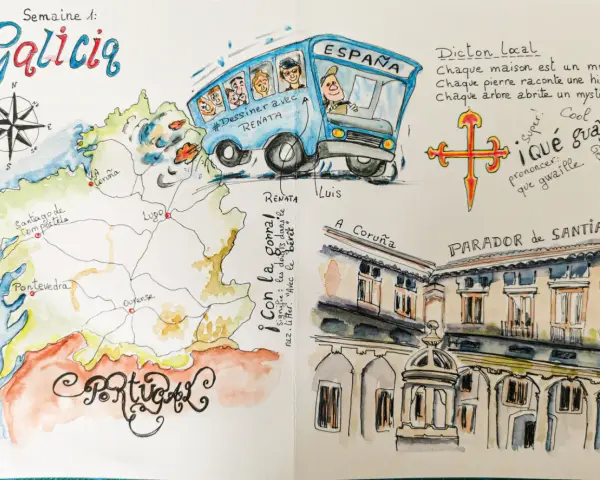 Semaine 1:
Galicia
ESPAÑA
#Dessiner avec
RENATA
RENATA
Luis
Dicton Local
Chaque maison est un mu
Chaque pierre raconte une hi
Chaque arbre abrite un myst
Super:
Cool
¡Qué gua
prononcer:
que gwaille
A
Coruña
Santiago de
Compostela
LUGO
Pontevedra
Ourense
PORTUGAL
¡Con la gorra!
signifie: les doigts dans le
nez. Litter. "Avec le béret"
A Coruña
PARADOR de SANTIA